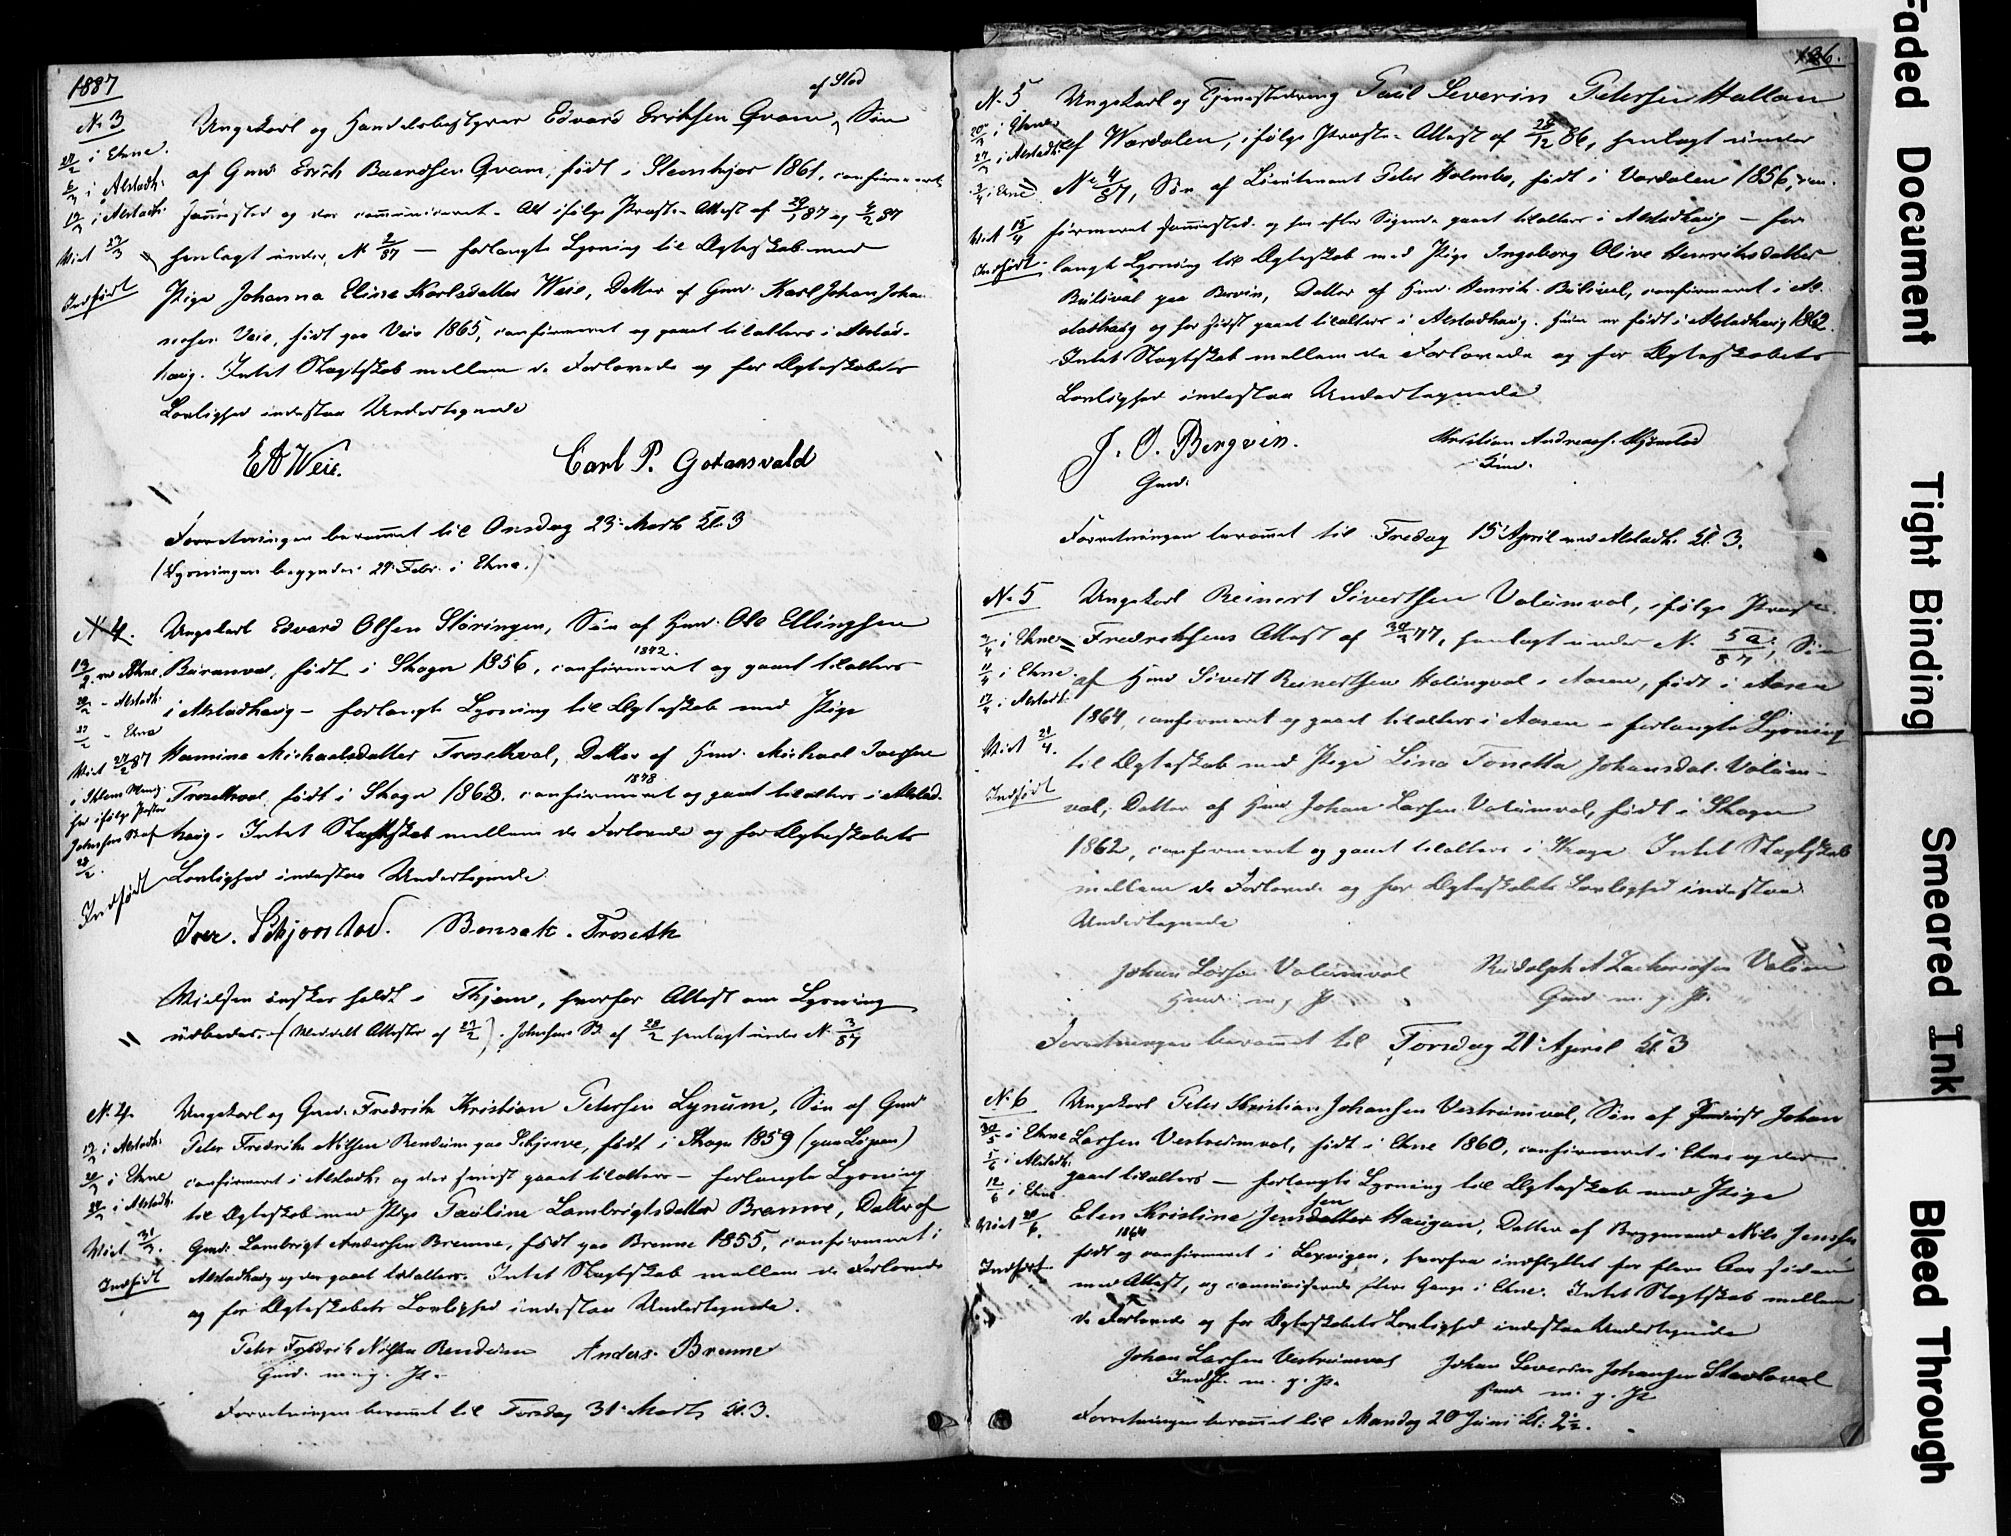 1887
af Stod
N. 3 Ungekarl og Handelsbestyrer Edvard Eriksen Qvam, Søn
27/2 i Ekne.
af Gmd. Erich Baardsen Qvam, født i Stenkjær 1861, confirmeret
6/3 i Alstadh.
13/3 i Alstadh. sammested og der communiceret. Alt ifølge Præste-Attest af 29/1 87 og 4/2 87
Viet 23/3
henlagt under N. 2/87 — forlangte Lysning til Ægteskab med
Indført
Pige Johanna Eline Karlsdatter Veie, Datter af Gmd. Karl Johan Johan-
nesen Veie, født paa Veie 1865, confirmeret og gaaet tilalters i Alstad-
haug. Intet Slægtskab mellem de Forlovede og for Ægteskabets
Lovlighed indestaa Undertegnede
E A Weie. Carl P. Gotaasvald
Forretningen berammet til Onsdag 23. Marts Kl. 3
(Lysningen begynder 27. Febr. i Ekne.)
N. 4. Ungekarl Edvard Olsen Støringen, Søn af Hmd. Ole Ellingsen
1872.
13/2 ved Ekne Buranval, født i Skogn 1856, confirmeret og gaaet tilalters
20/2 - Alstadh.
i Alstadhaug — forlangte Lysning til Ægteskab med Pige
27/2 - Ekne
Viet 27/2 87 Hamine Michaelsdatter Frosethval, Datter af Hmd. Michael Iversen
1878
Frosethval, født i Skogn 1863. confirmeret og gaaet tilalters i Alstad-
haug. Intet Slægtskab mellem de Forlovede og for Ægteskabets
28/2.
Indført
Lovlighed indestaa Undertegnede
Iver. Schjørstad. Bensak. Froseth
Vielsen ønskes holdt i Thjem, hvorfor Attest om Lysning
udbedes. (Meddelt Attester af 27/2). Johnsens B. af 28/2 henlagt under N. 3/87
N. 4. Ungekarl og Gmd. Fredrik Kristian Petersen Lynum, Søn af Gmd
13/3 i Alstadh. Peter Fredrik Nilsen Rendum paa Schjerve, født i Skogn 1859 (paa Løpen)
20/3 i Ekne confirmeret i Alstadh. og der senest gaaet tilalters — forlangte Lysning
i Alstadh. til Ægteskab med Pige Pauline Lambrigtsdatter Brenne, Datter af
Viet 31/3. Gmd. Lambrigt Andersen Brenne, født paa Brenne 1855, confirmeret i
Indført Alstadhaug og der gaaet tilalters. Intet Slægtskab mellem de Forlovede
og for Ægteskabets Lovlighed indestaa Undertegnede.
Peter Fredrik Nilsen Rendum Anders. Brenne
Gmd. m. g. P.
Forretningen berammet til Torsdag 31. Marts Kl. 3.
126.
N. 5 Ungekarl og Tjenestedreng Paul Severin Petersen Hallan
20/3 i Ekne
27/3 i Alstadh. af Værdalen, ifølge Præste-Attest af 29/12 86, henlagt under
3/4 i Ekne N. 4/87, Søn af Lieutenant Peter Holmbo, født i Værdalen 1856, con-
Viet 15/4 firmeret sammested og har efter Sigende gaaet tilalters i Alstadhaug — for-
Indført langte Lysning til Ægteskab med Pige Ingeborg Olive Henriksdatter
Bülival paa Bervin, Datter af Hmd. Henrik Bülival, confirmeret i Al-
stadhaug og har sidst gaaet tilalters i Alstadhaug. Hun er født i Alstadhaug 1862.
Intet Slægtskab mellem de Forlovede og for Ægteskabets
Lovlighed indestaa Undertegnede
J. O. Bergvin. Kristian Andreas.
Gmd. Hmd.
Forretningen berammet til Fredag 15. April ved Alstadh. Kl. 3.
N. 5 Ungekarl Reinert Sivertsen Valumval, ifølge Præst
i Ekne Fredriksens Attest af 77, henlagt under N. 5a/87, Søn
11/4 i Ekne. af Hmd Sivert Reinertsen i Aasen, født i Aasen
17/4 i Alstadh. 1864, confirmeret og gaaet tilalters i Aasen — forlangte Lysning
Viet 21/4. til Ægteskab med Pige Lina Tonetta Johansdat. Valum-
Indført val, Datter af Hmd Johan Larsen Valumval, født i Skogn
1862, confirmeret og gaaet tilalters i Skogn Intet Slægtskab
mellem de Forlovede og for Ægteskabets Lovlighed indestaa
Undertegnede
Johan Larsen Valumval Rudolph A Zachariasen Valum
Hmd m. g. P. Gmd m. g. P.
Forretningen berammet til Torsdag 21. April Kl. 3
N. 6 Ungekarl Peter Kristian Johansen Vestrumval, Søn af Johan
30/5 i Ekne Larsen Vestrumval, født i Ekne 1860, confirmeret i Ekne og der
5/6 i Alstadh.
12/6 i Ekne gaaet tilalters — forlangte Lysning til Ægteskab med Pige
sen
Viet 20/6. Elen Kristine Jensdatter Haugan, Datter af Nils Jensen
1864
Indført født og confirmeret i Lexvigen, hvorfra indflyttet for flere Aar siden
med Attest, og communiserede flere Gange i Ekne. Intet Slægtskab mellem
de Forlovede og for Ægteskabets Lovlighed indestaa Undertegnede
Johan Larsen Vestrumval Johan Severin Johansen Stavloval
Indh. m. g. P. Hmd m. g. P.
Forretningen berammet til Mandag 20 Juni Kl. 2 1/2.
Faded Document
Tight Binding
Smeared Ink
Bleed Through